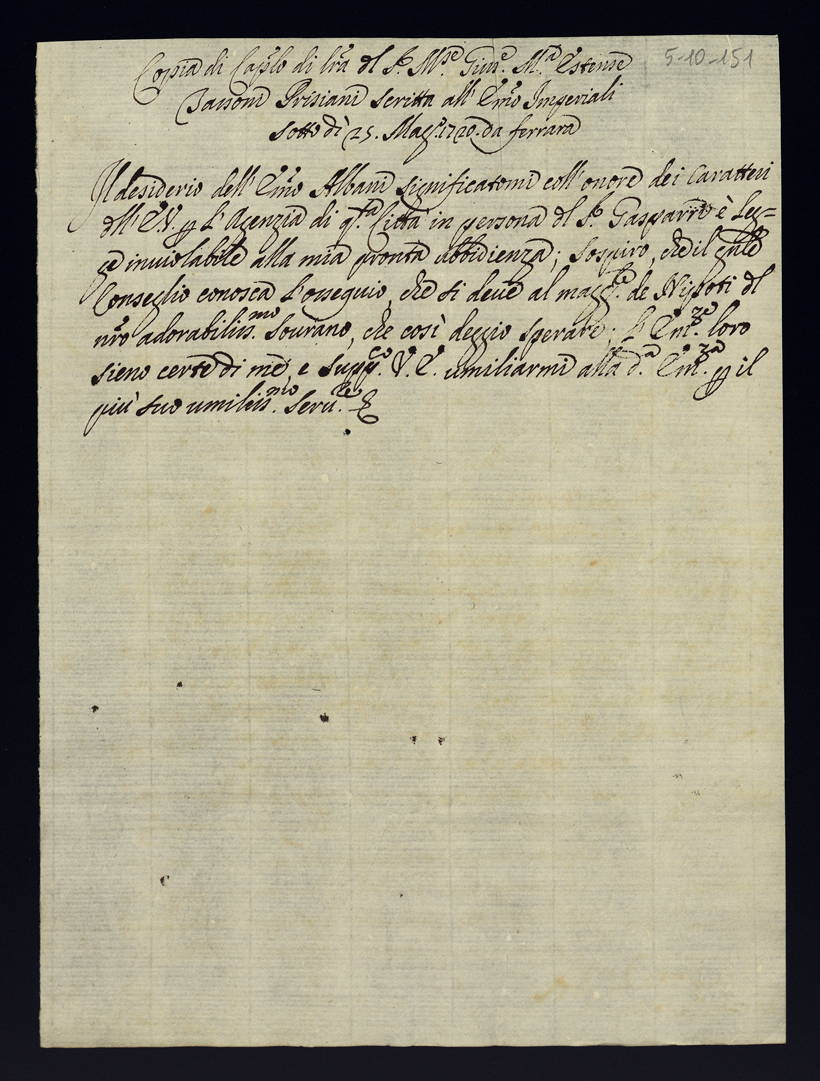 Copia di Caplo di lra dl Sr. Mse. Gius.e M.a Estense 5-10-151
Tassoni Prisiani scritta all' Emo Imperiali
sotto dì 25. Magg.o 1720. da ferrara
Il desiderio dell' Emo Albani significatomi coll' onore dei Caratteri
dll' E.V. p l'Agenzia di q.ta Città in persona dl Sr. Gasparri è Leg=
ge inviolabile alla mia pronta obbidienza; Sospiro, che il gnle
Conseglio conosca l'ossequio, che si deve al magg.re de Nipoti dl
nro adorabiliss.mo Sourano, che così deggio sperare; l'Em.ze loro
sieno certe di me, e supp.co V.E. umiliarmi alla d.a Em.za p il
più suo umiliss.mo Seru.re &